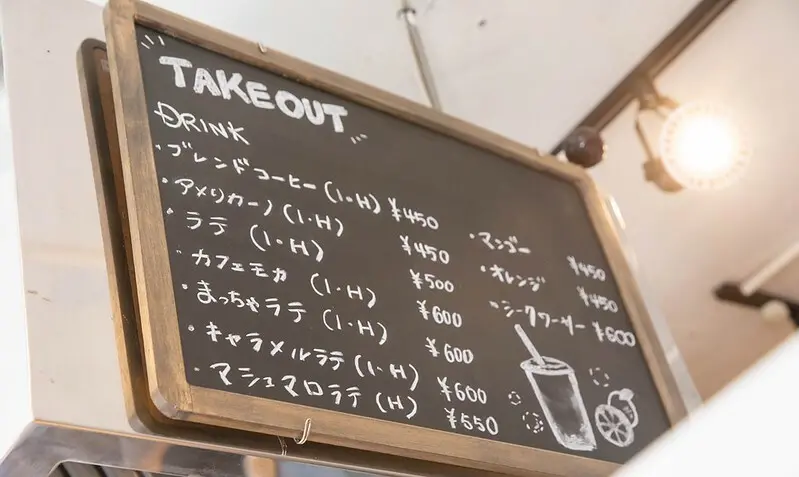 TAKEOUT
DRINK
・ブレンドコーヒー(I・H) ¥450
・アメリカーノ(I・H) ¥450
・ラテ (I・H) ¥500
カフェモカ (I・H) ¥600
・まっちゃラテ (I・H) ¥600
・キャラメルラテ(I・H) ¥600
・マシュマロラテ (H) ¥550
・マンゴー ¥450
・オレンジ ¥450
・シークワーサー ¥600